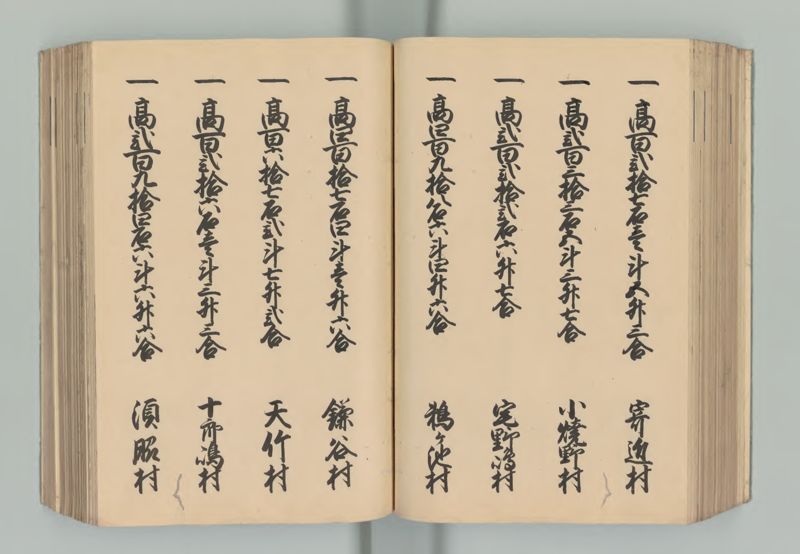 一 高百弐拾七石壱斗五升三合 寄近村
一 高弐百三拾三石五斗三升七合 小焼野村
一 高弐百弐拾弐石六升七合 定野嶋村
一 高四百九拾八石六斗四升六合 鵜ヶ池村
一 高四百拾七石四斗壱升六合 鎌谷村
一 高百六拾七石弐斗七升弐合 天竹村
一 高百弐拾六石壱斗三升三合 十郎嶋村
一 高弐百九拾四石六斗六升六合 須脇村